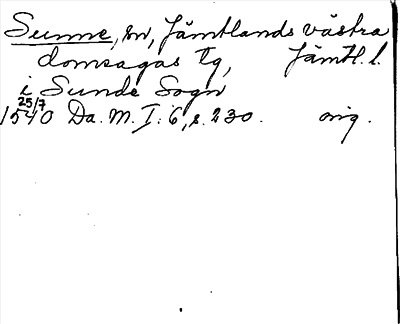 Sunne, sn, Jämtlands västra
domsagas tg, Jämtl. l.
i Sunde Sogn
25/7
1540 Da. M. I: 6, s. 230. orig.